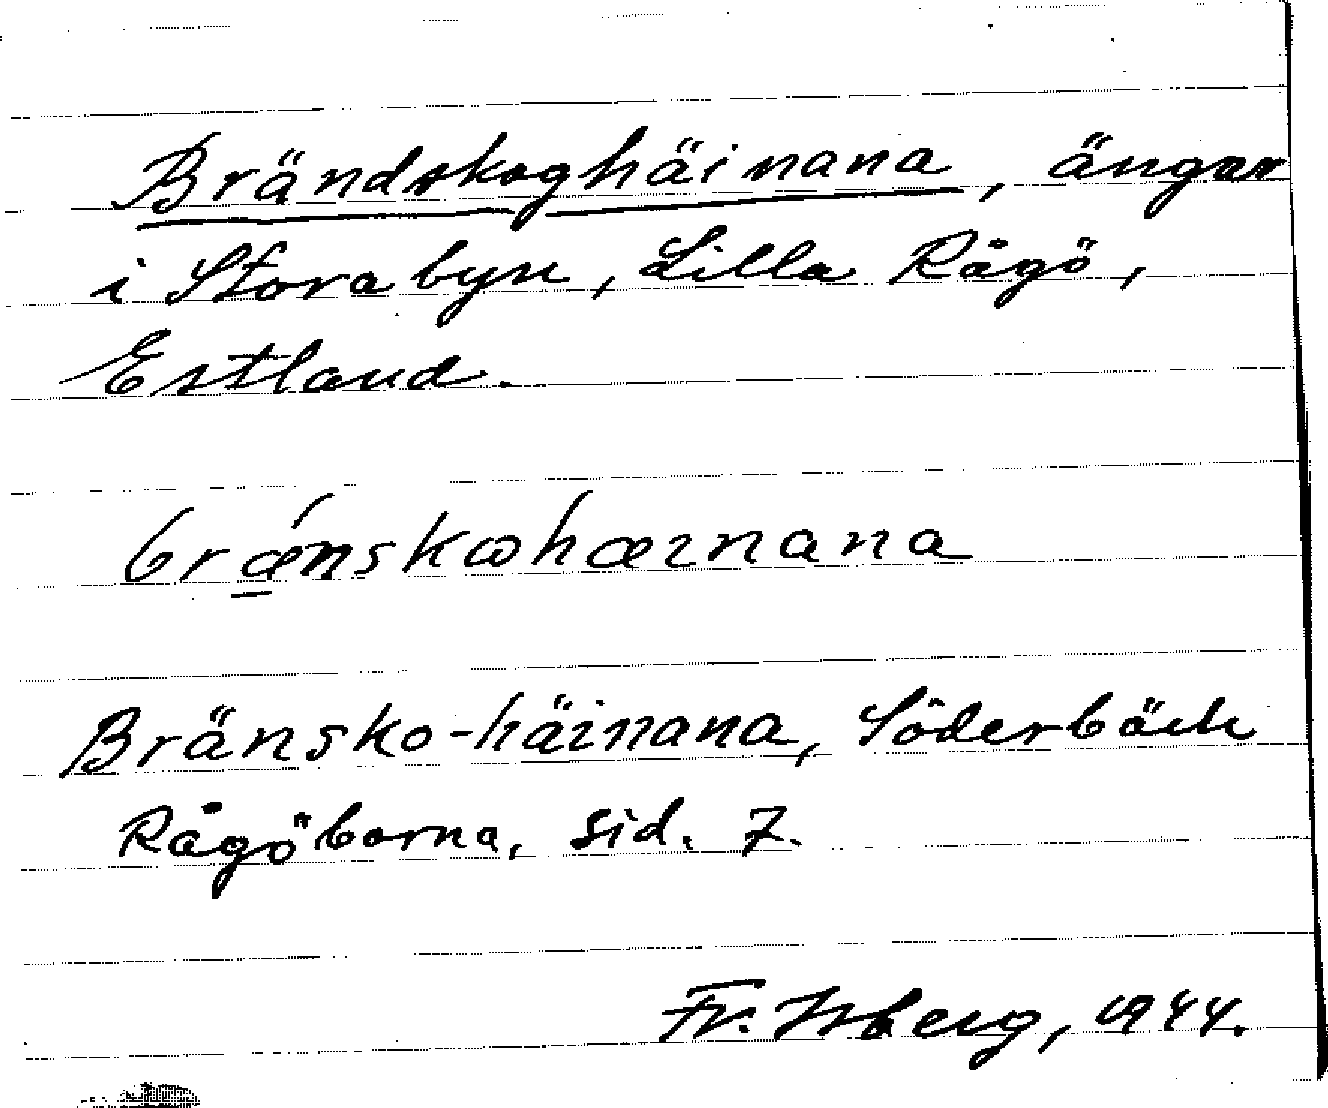 Brändskoghäinana, ängar
i Storabyn, Lilla Rågö,
Estland.
brǽnskωhæınana
Bränsko-häinana, Söderbäck
Rågöborna, sid. 7.
Fr. Isberg, 1944.